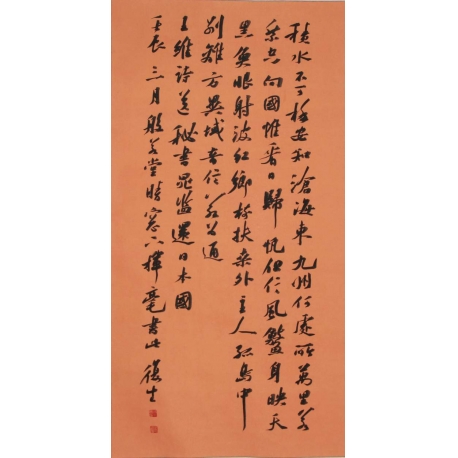 積水不可極安知滄海東九州何處所萬里若
乘空向國惟看日歸帆但信風鰲身映天
黑魚眼射波紅鄉樹扶桑外主人孤島中
別離方異域音信若為通
王維詩送秘書晁監還日本國
壬辰三月般若堂晴窗下揮毫書此 復生